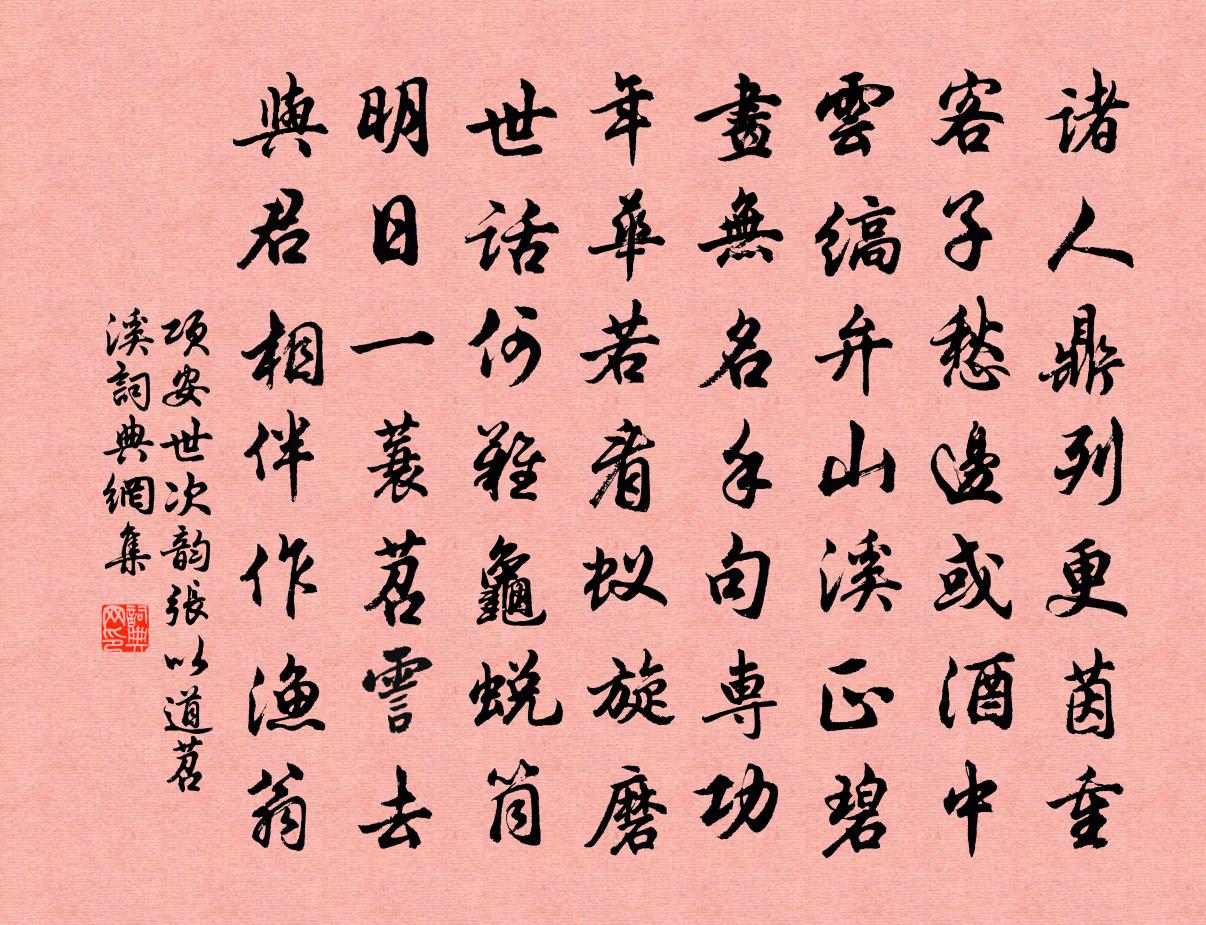 诸人鼎列更茵重
客子愁邊或酒中
雲缟弁山溪正碧
畫無名手句専功
年華若看蚁旋磨
世话何難龜蜕筒
明日一蓑苕霅去
與君相伴作漁翁
項安世次韵張以道苕
溪詞典網集
詞典网印